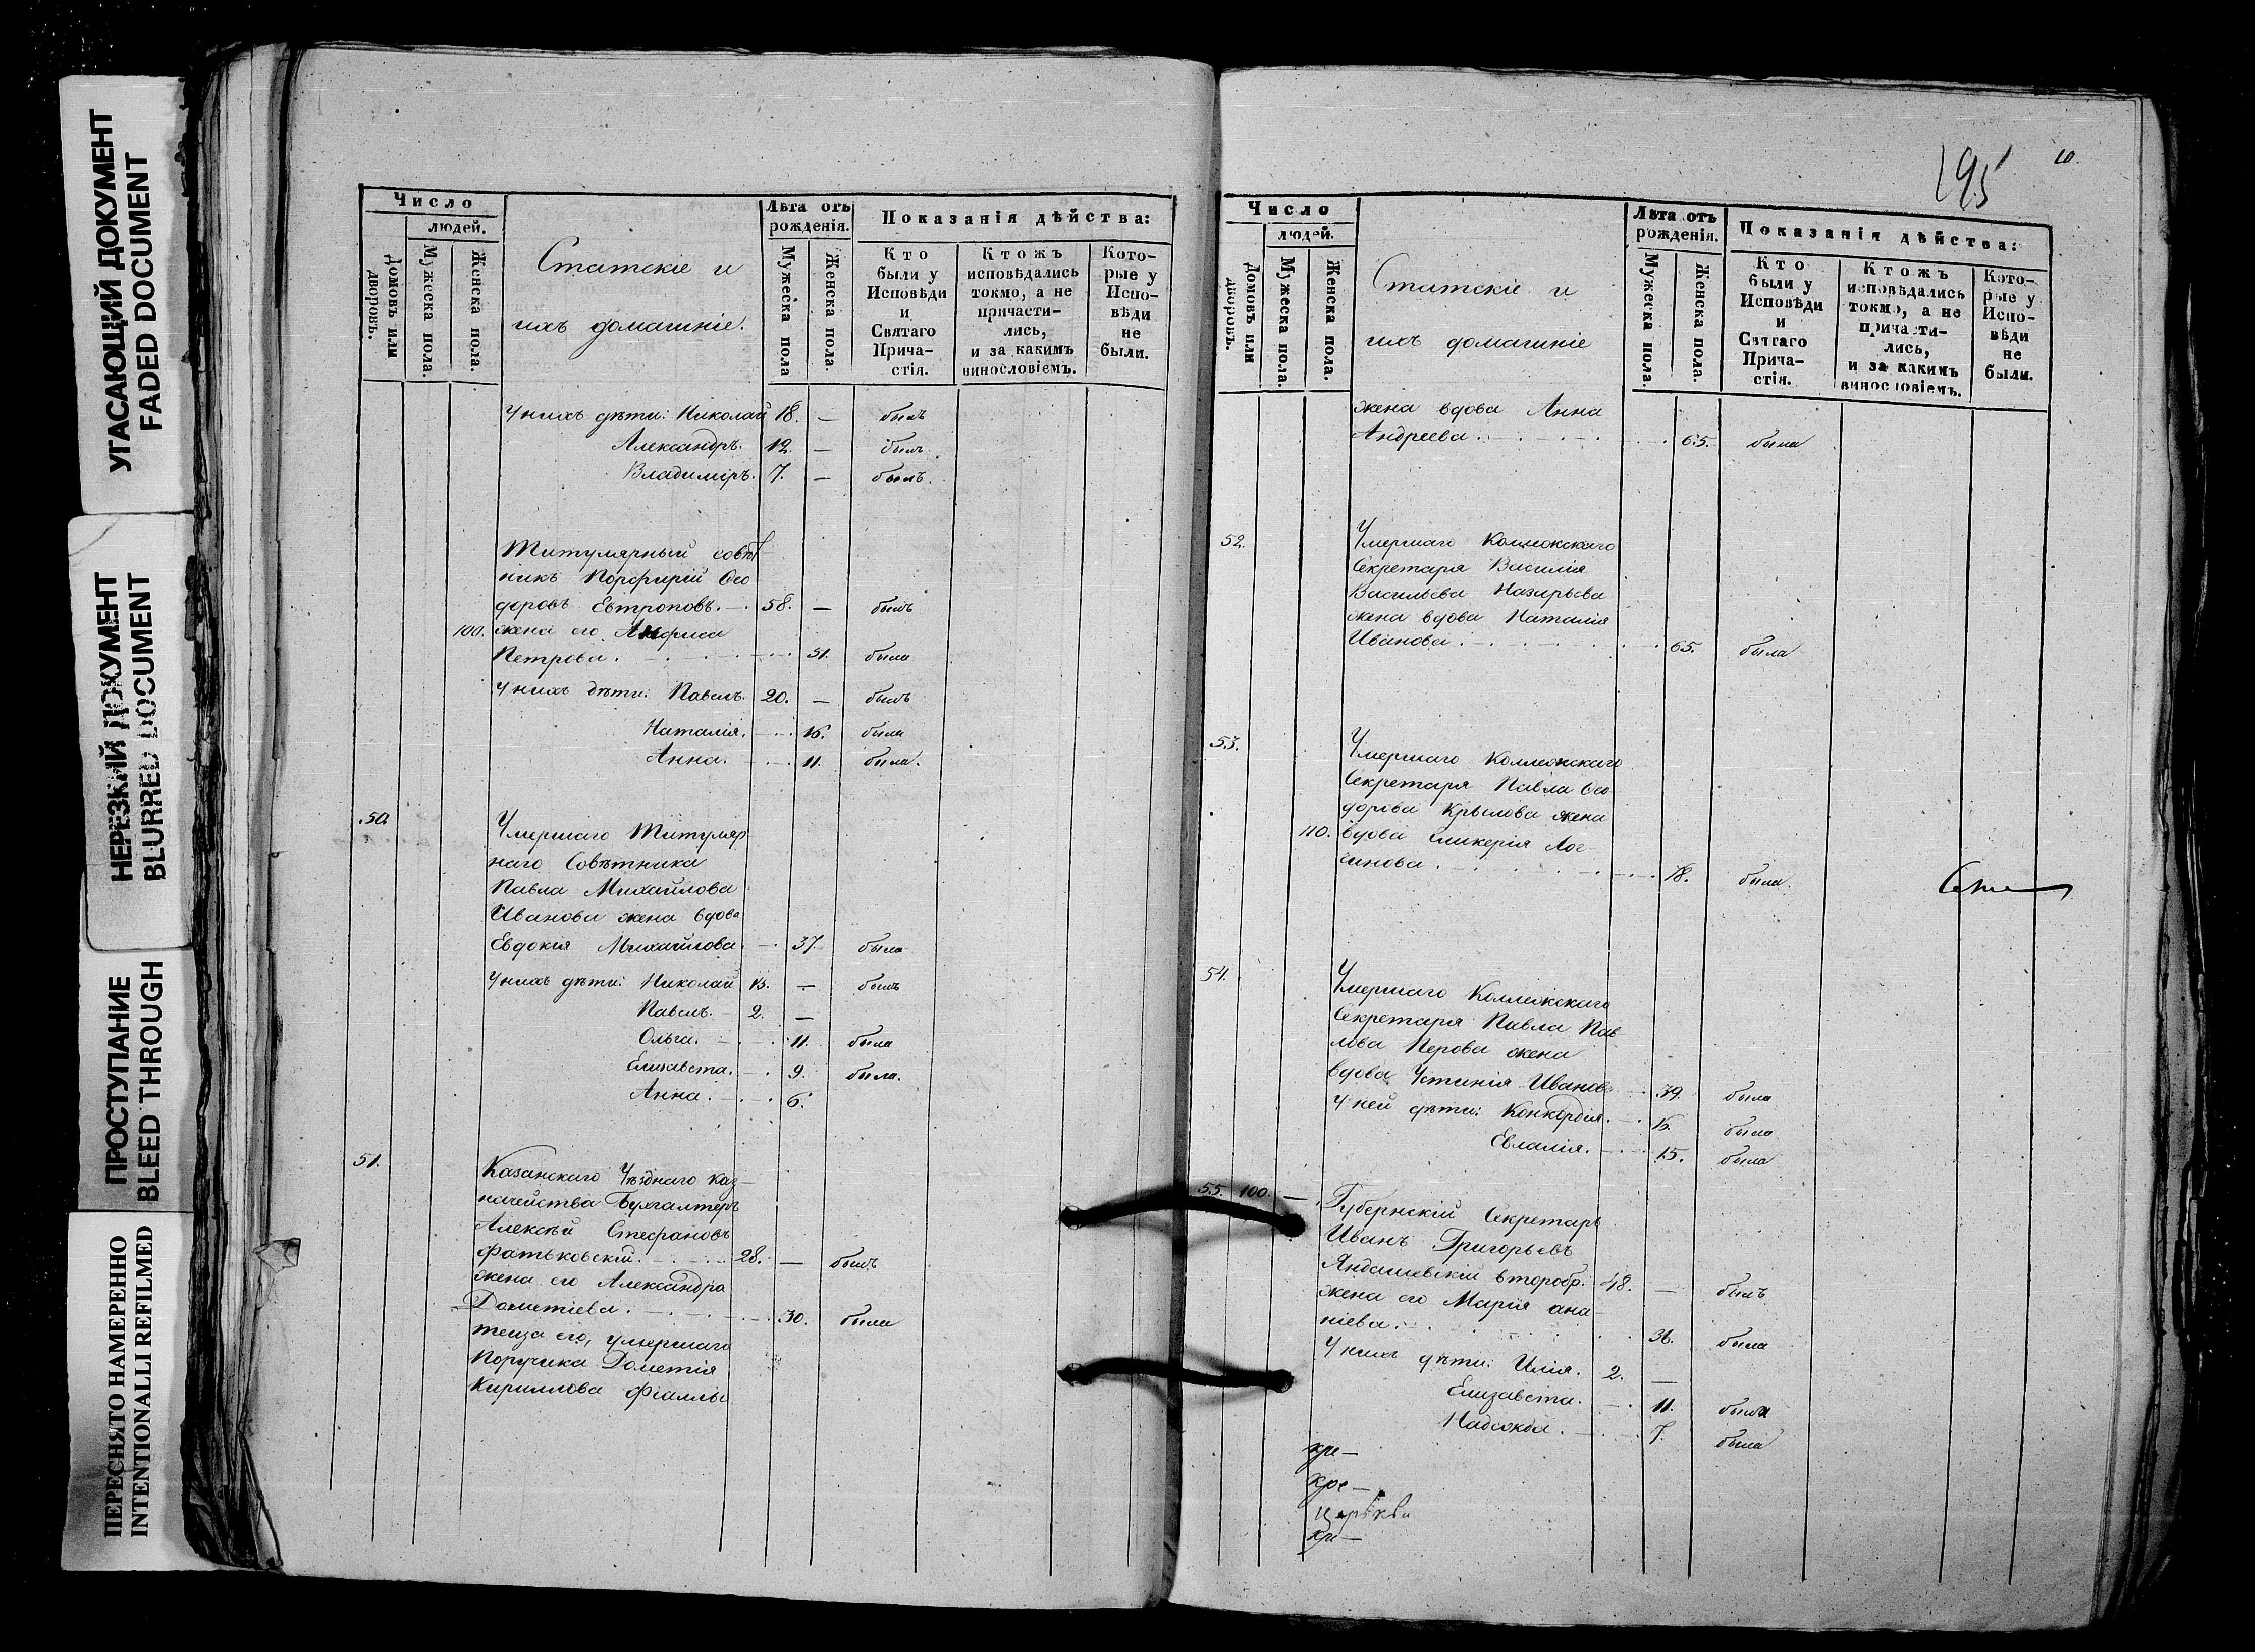 УГАСАЮЩИЙ ДОКУМЕНТ
FADED DOCUMENT
НЕРЕЗКИЙ ДОКУМЕНТ
BLURRED DOCUMENT
ПРОСТУПАНИЕ
BLEED THROUGH
ПЕРЕСНЯТО НАМЕРЕННО
INTENTIONALLI REFILMED
Число
людей.
Домовъ или дворовъ.
Мужеска пола.
Женска пола.
Статскіе и
ихъ домашніе.
Лѣта отъ
рожденія.
Мужеска пола
Женска пола.
Показанія дѣйства:
Кто
были у
Исповѣди
и
Святаго
Прича-
стія.
Ктожъ
исповѣдались
токмо, а не
причасти-
лись,
и за какимъ
винословіемъ.
Кото-
рые у
Испо-
вѣди
не
были.
У нихъ дѣти: Николай 18. — былъ
Александръ. 12. — былъ
Владиміръ. 7. — былъ.
Титулярный совѣт
никъ Порфирій Ѳео
доровъ Евтроповъ. 58. — былъ
100. жена его Анфиса
Петрова. 51. была
У нихъ дѣти: Павелъ. 20. — былъ
Наталія. 16. была
Анна. 11. была.
50. Умершаго Титуляр
наго Совѣтника
Павла Михайлова
Иванова жена вдова
Евдокія Михайлова. 37. была
У нихъ дѣти: Николай 13. — былъ
Павелъ. 2. —
Ольга. 11. была
Елизавета. 9. была.
Анна. 6.
51. Казанскаго Уѣзднаго Каз-
начейства Бухгалтеръ
Алексѣй Стефановъ
Фатьковскій. 28. — былъ
жена его Александра
Дометіева. 30. была
теща его, умершаго
Поручика Дометія
Кириллова Фіаллы
195
10.
Число
людей.
Домовъ или дворовъ.
Мужеска пола.
Женска пола.
Статскіе и
ихъ домашніе
Лѣта отъ
рожденія.
Мужеска пола.
Женска пола.
Показанія дѣйства:
Кто
были у
Исповѣди
и
Святаго
Прича-
стія.
Ктожъ
исповѣдались
токмо, а не
причасти-
лись,
и за какимъ
винословіемъ.
Кото-
рые у
Испо-
вѣди
не
были.
жена вдова Анна
Андреева. 65. была
52. Умершаго Коллежскаго
Секретаря Василія
Васильева Назарьева
жена вдова Наталія
Иванова. 65. была
53. Умершаго Коллежскаго
Секретаря Павла Ѳео
дорова Крылова жена
110. вдова Гликерія Лог-
гинова. 78. была.
54. Умершаго Коллежскаго
Секретаря Павла Пав
лова Перова жена
вдова Устинія Иванов 39. была
У ней дѣти: Конкордія. 16. была
Евлалія. 15. была
55. 100. — Губернскій Секретарь
Иванъ Григорьевъ
Яндашевскій второбр. 48. — былъ
жена его Марія ана-
ніева. 36. была
У нихъ дѣти: Илія. 2. —
Елизавета. 11. была
Надежда. 7. была
хре—
церькви